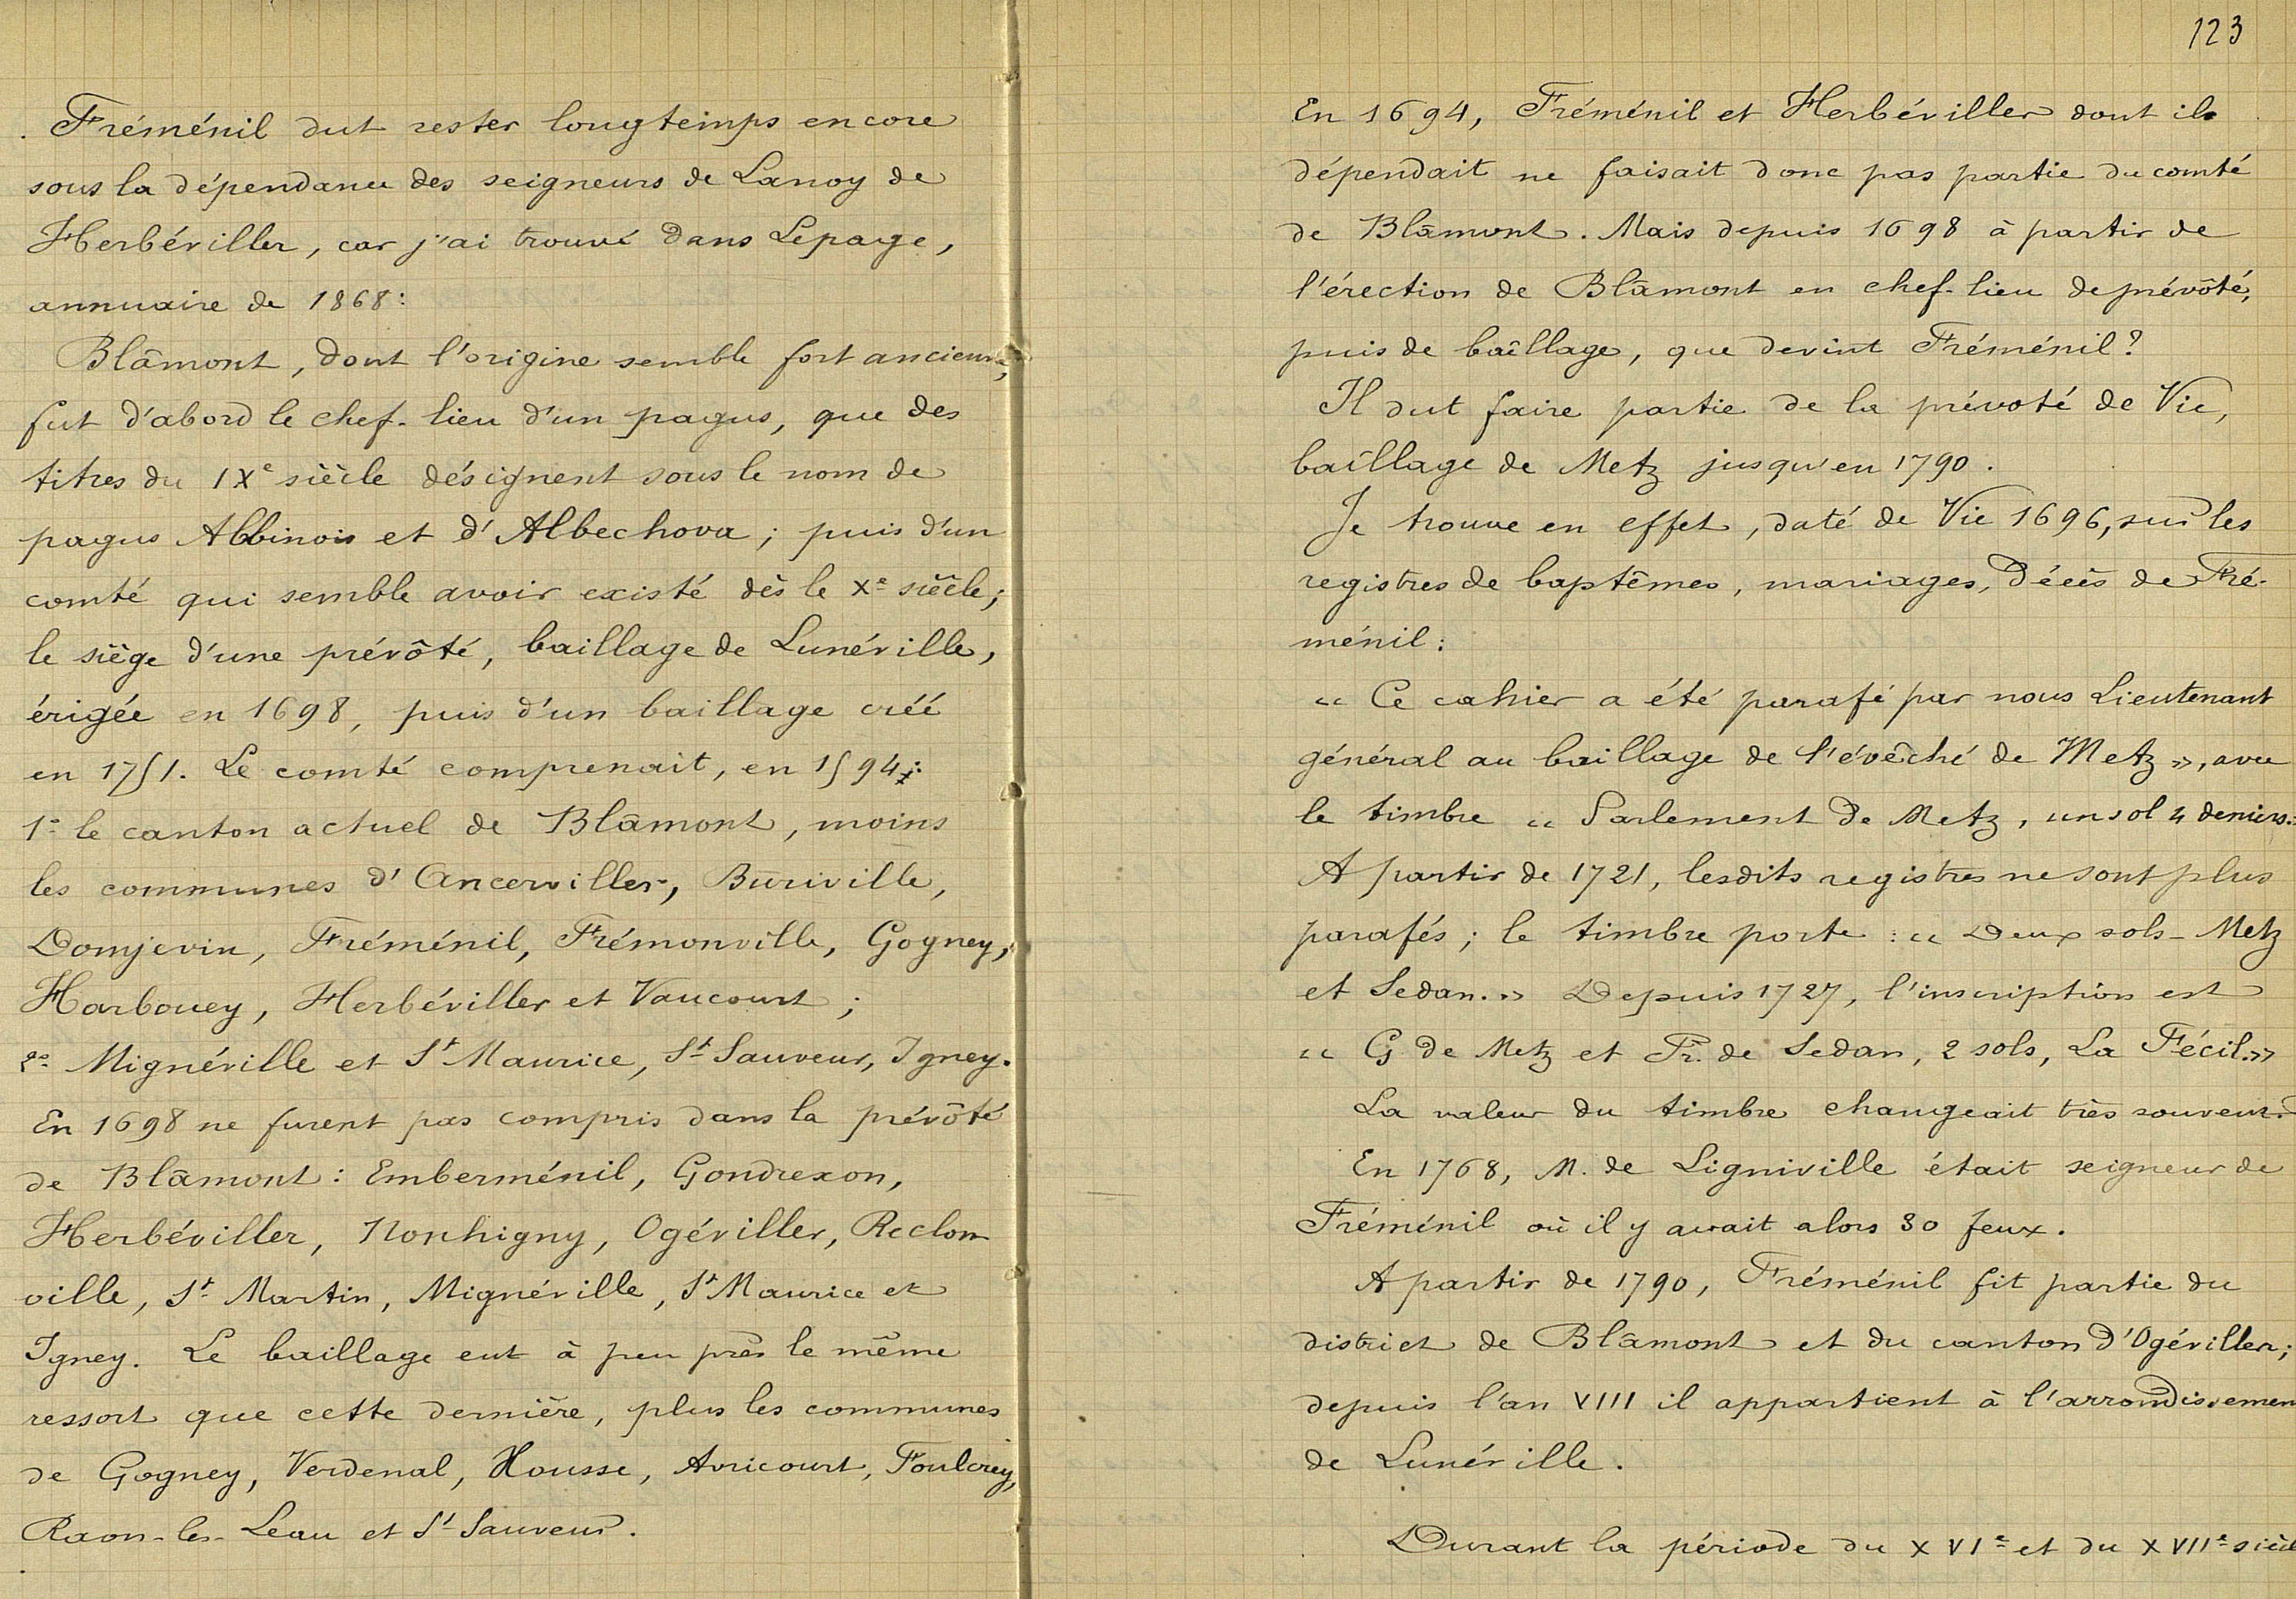 Fréménil dut rester longtemps encore
sous la dépendance des seigneurs de Lanoy de
Herbéviller, car j'ai trouvé dans Lepage,
annuaire de 1868:
Blâmont, dont l'origine semble fort ancienne,
fut d'abord le chef-lieu d'un pagus, que des
titres du IXe siècle désignent sous le nom de
pagus Albinois et d'Albechova; puis d'un
comté qui semble avoir existé dès le Xe siècle;
le siège d'une prévôté, baillage de Lunéville,
érigée en 1698, puis d'un baillage créé
en 1751. Le comté comprenait, en 1594:
1o le canton actuel de Blâmont, moins
les communes d'Ancerviller, Buriville,
Domjevin, Fréménil, Frémonville, Gogney,
Harbouey, Herbéviller et Vaucourt;
2o Mignéville et St Maurice, St Sauveur, Igney.
En 1698 ne furent pas compris dans la prévôté
de Blâmont: Emberménil, Gondrexon,
Herbéviller, Nonhigny, Ogéviller, Reclon
ville, St Martin, Mignéville, St Maurice et
Igney. Le baillage eut à peu près le même
ressort que cette dernière, plus les communes
de Gogney, Verdenal, Xousse, Avricourt, Foulcrey,
Raon-les-Leau et St Sauveur.
123
En 1694, Fréménil et Herbéviller dont il
dépendait ne faisait donc pas partie du comté
de Blâmont. Mais depuis 1698 à partir de
l'érection de Blâmont en chef-lieu de prévôté,
puis de baîllage, que devint Fréménil?
Il dut faire partie de la prévoté de Vic,
baîllage de Metz jusqu'en 1790.
Je trouve en effet, daté de Vic 1696, sur les
registres de baptêmes, mariages, décès de Fré-
ménil:
« Ce cahier a été parafé par nous Lieutenant
général au baillage de l'évêché de Metz », avec
le timbre « Parlement de Metz, un sol 4 deniers.»
A partir de 1721, lesdits registres ne sont plus
parafés; le timbre porte: « Deux sols - Metz
et Sedan.» Depuis 1727, l'inscription est
« G. de Metz et Fr. de Sedan, 2 sols, La Fécil.»
La valeur du timbre changeait très souvent.
En 1768, M. de Ligniville était seigneur de
Fréménil où il y avait alors 30 feux.
A partir de 1790, Fréménil fit partie du
district de Blâmont et du canton d'Ogéviller;
depuis l'an VIII il appartient à l'arrondissemen
de Lunéville.
Durant la période du XVIe et du XVIIe siècl